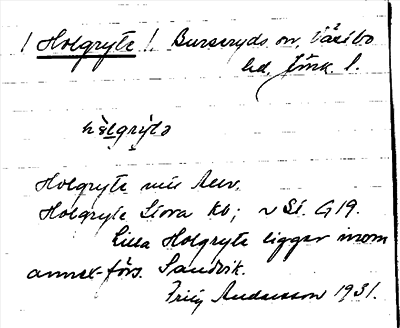 / Holgryte /. Burseryds sn, Västbo
hd, Jönk. l.
hòlgry̆tə
Holgryte
Holgryte Stora kb; ~ St. G19.
Lilla Holgryte ligger inom
annex-förs. Sandvik.
Andersson 1931.